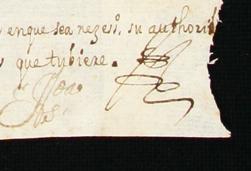 enque sea nezesº, su authorid
que tubiere.